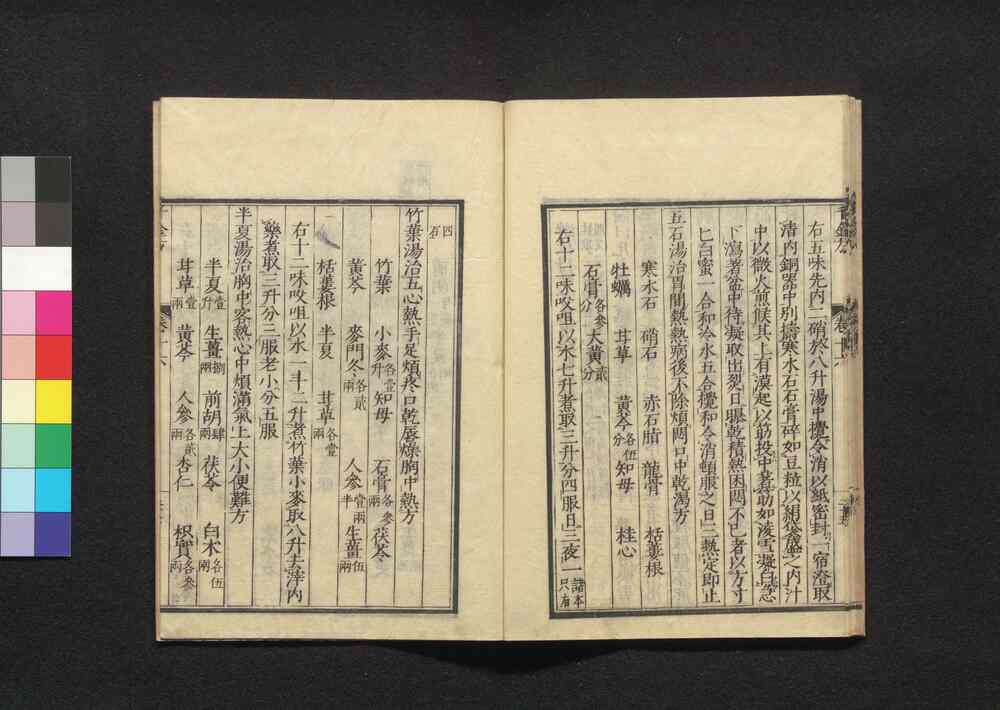 右五味先内二硝於八升湯中攪令消以紙密封一宿澄取
清内銅器中別擣寒水石石膏碎如豆粒以絹袋盛之内汁
中以微火煎候其上有漠起以筯投中著筯如凌雪凝白急
下瀉著盆中待凝取出裂日曝乾積熱困悶不已者以方寸
匕白蜜一合和冷水五合攪和令消頓服之日三熱定即止
五石湯治胃間熱熱病後不除煩悶口中乾渴方
寒水石 硝石 赤石脂 龍骨 栝蔞根
牡蠣 甘草 黃芩各伍分 知母 桂心
石膏各叄分 大黃貳分
右十二味㕮咀以水七升煮取三升分四服日三夜一諸本只有
四石
竹葉湯治五心熱手足煩疼口乾唇燥胸中熱方
竹葉 小麥各壹升 知母 石膏各叄兩 茯苓
黃芩 麥門冬各貳兩 人參壹兩半 生薑伍兩
栝蔞根 半夏 甘草各壹兩
右十二味㕮咀以水一斗二升煮竹葉小麥取八升去滓内
藥煮取三升分三服老小分五服
半夏湯治胸中客熱心中煩滿氣上大小便難方
半夏壹升 生薑捌兩 前胡肆兩 茯苓 白木各伍兩
甘草兩 黃芩 人參各貳兩 杏仁 枳實各叄兩